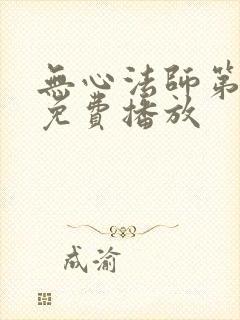 無心法師第
免費播放
成渝